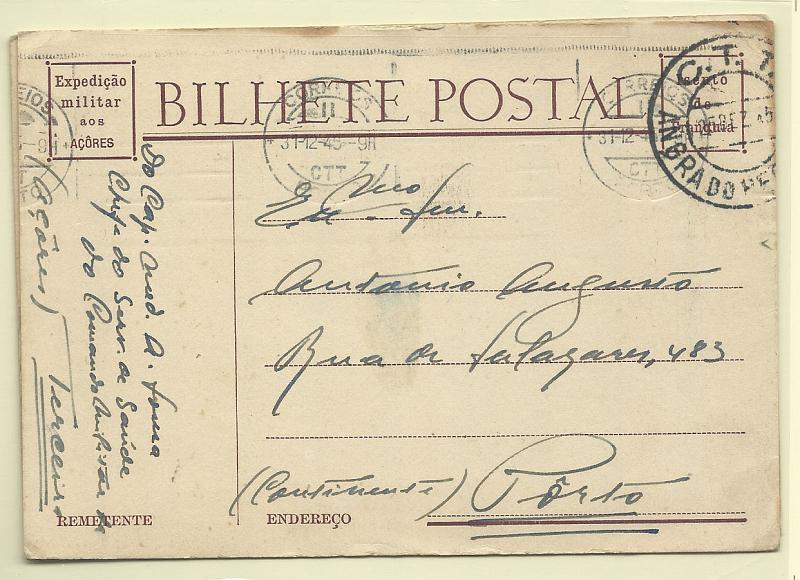 Expedição
militar
aos
AÇÔRES
BILHETE POSTAL
Isento
de
franquia
CORREIOS
31-12-45--9H
CTT
CORREIOS
31-12-4
CTT
C.T.T.
ANGRA DO HE
Exmo. Snr.
António Augusto
Rua de 483
(Continente) Pôrto
Do Cap. A.
Chefe do Serv. de Saúde
do Comando Militar da
Terceira
(Açôres)
REMETENTE
ENDEREÇO